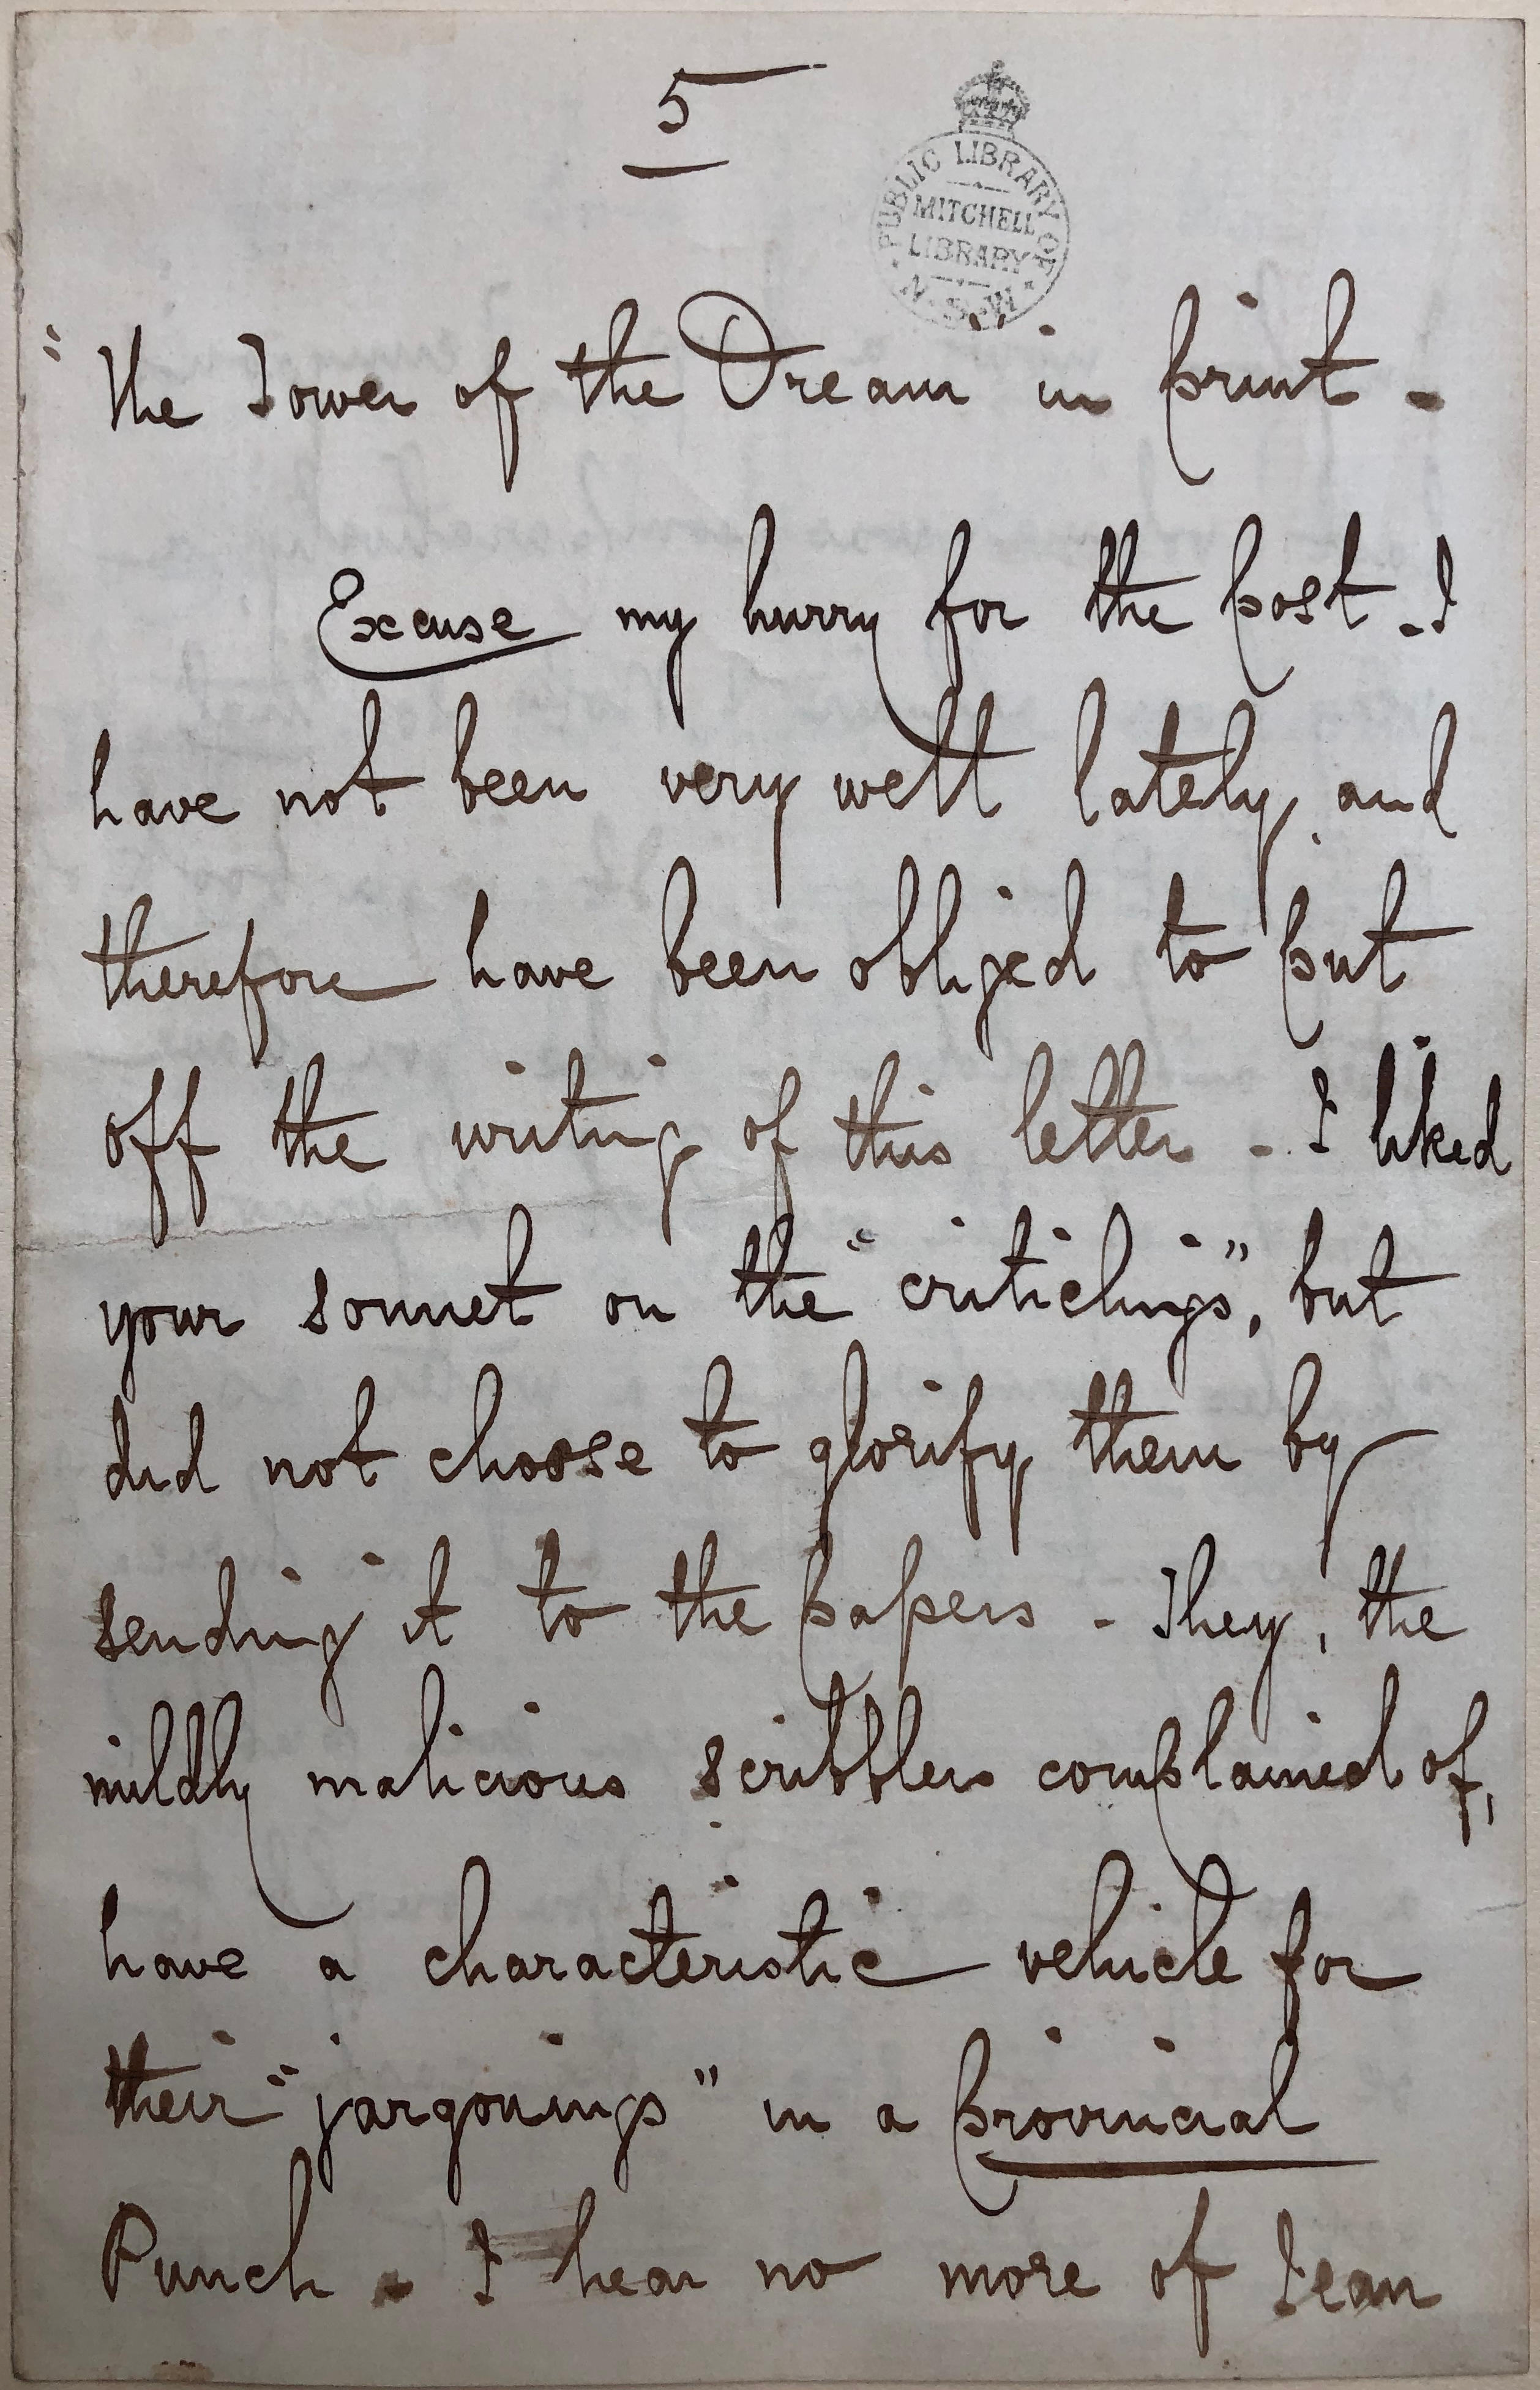 5
PUBLIC LIBRARY OF
MITCHELL
LIBRARY
N.S.W.
"The Tower of the Dream in print -
Excuse my hurry for the post. I
have not been very well lately, and
therefore have been obliged to put
off the writing of this letter - I liked
your sonnet on the "criticlings", but
did not choose to glorify them by
sending it to the papers - They, the
mildly malicious scribblers complained of,
have a characteristic vehicle for
their "jargonings" in a provincial
Punch - I hear no more of